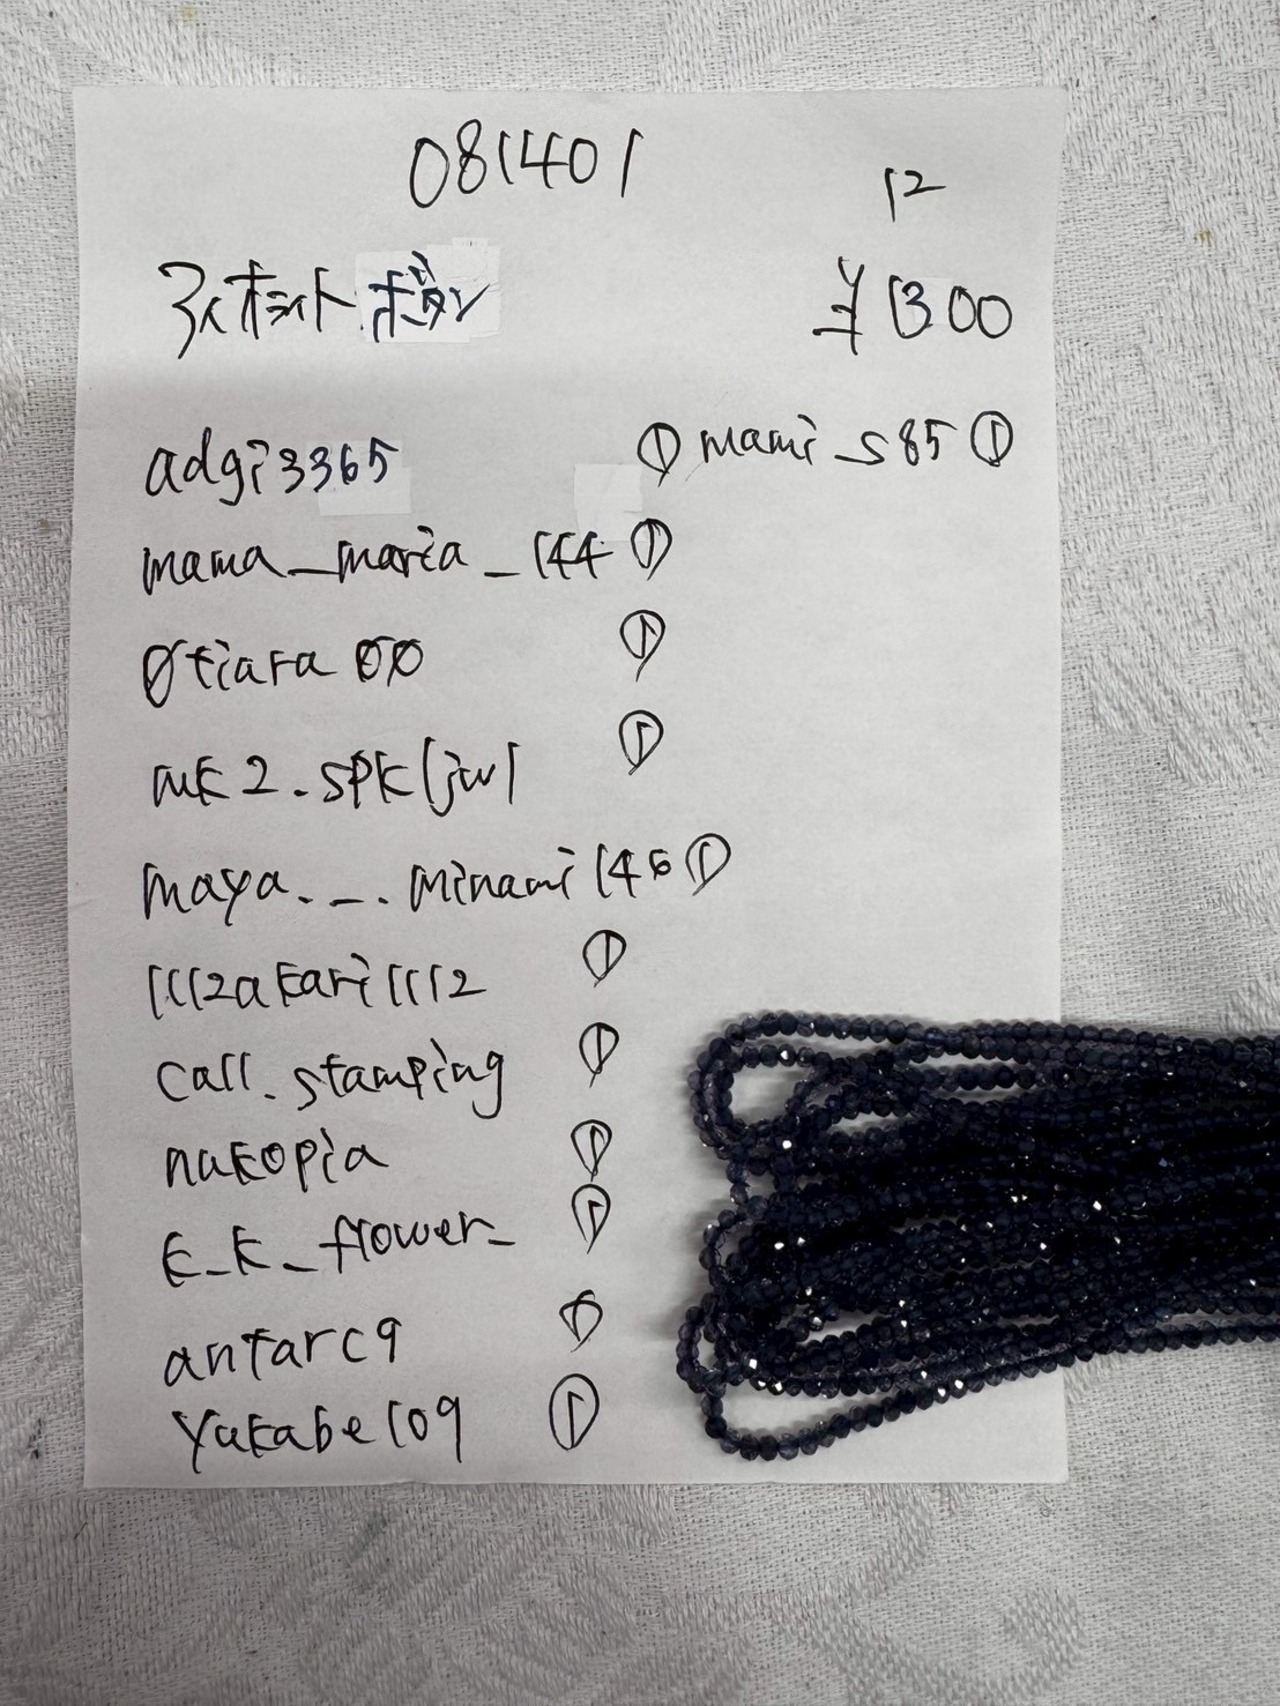 081401
12
アイオライトボタン
¥1300
adgi3365 ① mami_s85 ①
mama_maria_144 ①
0tiara00 ①
mk2.spk1jw1 ①
maya._.minami146 ①
1112akari1112 ①
call.stamping ①
nakopia ①
k_k_flower_ ①
antarc9 ①
yakabe109 ①